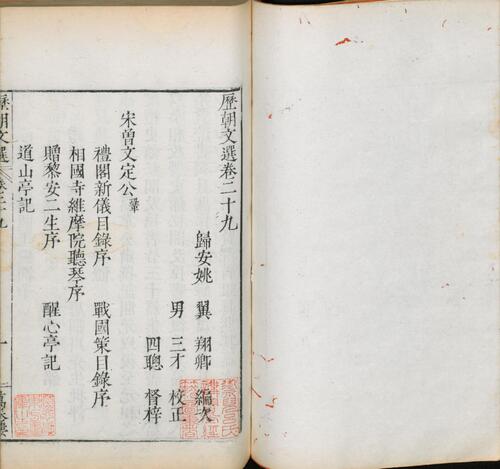 歷朝文選卷二十九
歸安姚　翼　翔卿　編次
男　三才　校正
四聰　督梓
宋曾文定公鞏
禮閣新儀目錄序　戰國策目錄序
相國寺維摩院聽琴序
贈黎安二生序　醒心亭記
道山亭記
歷朝文選　卷二十九　一